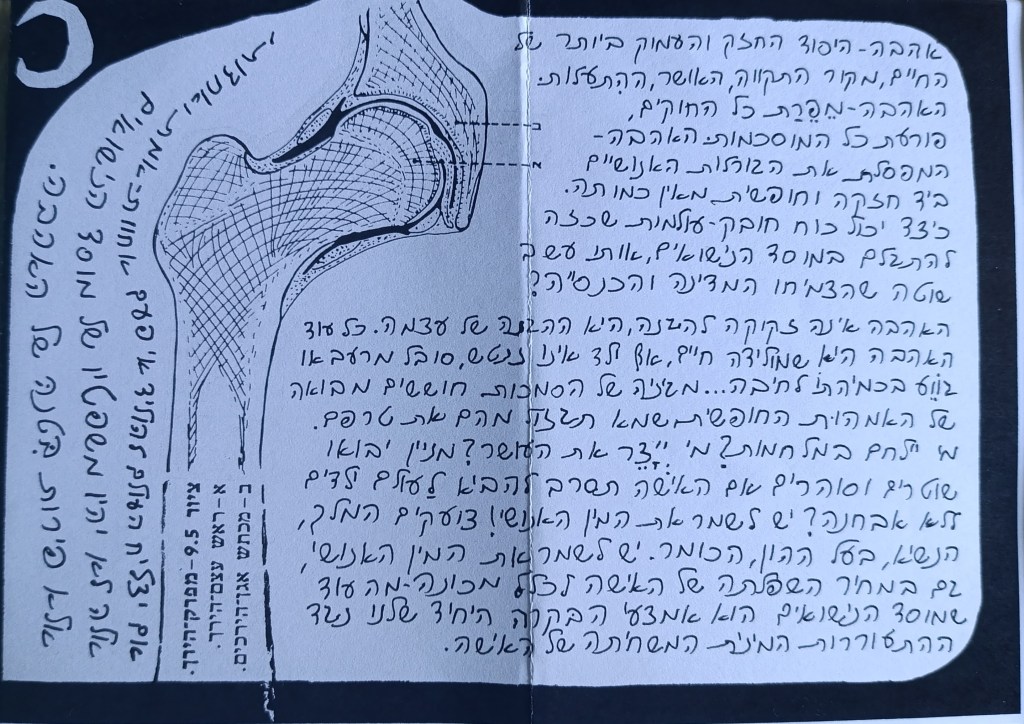 אהבה-היסוד החזק והעמוק ביותר של
החיים, מקור התקווה, האושר, ההִתְעלות.
האהבה-מֵפֵרַת כל החוקים,
פורעת כל המוסכמות. האהבה-
המפסלת את הגורלות האנושיים
ביד חזקה וחופשית מאין כמותה.
כיצד יכול כוח חובק-עולמית שכזה
להתגלם במוסד הנישואים, אותו עשב
שוטה שהצמיחו המדינה והכנסייה?
האהבה אינה זקוקה להגנה, היא ההגנה של עצמה. כל עוד
האהבה היא שמולידה חיים, אף ילד אינו ננטש, סובל מרעב או
גווע בכמיהתו לחיבה... נציגיה של הסמכות חוששים מבואה
של האמהוּת החופשית שמא תגזול מהם את טרפם.
מי יילחם במלחמות? מי יְיַצֵּר את העושר? מניין יבואו
שוטרים וסוהרים אם האישה תסרב להביא לָעולם ילדים
ללא אבחנה? יש לשמר את המין האנושי! צועקים המלך,
הנשיא, בעל ההון, הכומר. יש לשמר את המין האנושי,
גם במחיר השפלתה של האישה לכלל מכונה-מה עוד
שמוסד הנישואים הוא אמצעי הבקרה היחיד שלנו נגד
ההתעוררות המינית המשחיתה של האישה.
ב
א
ציור 5.6-מפרק הירך.
א-ראש עצם הירך.
ב-מכתש אגן הירכיים.
אם יצליח העולם להוליד אי פעם אחווה-אמיתית ואחדות
אלה לא יהיו משפטיו של מוסד הנישואים
אלא פירות בִּטנה של האהבה.